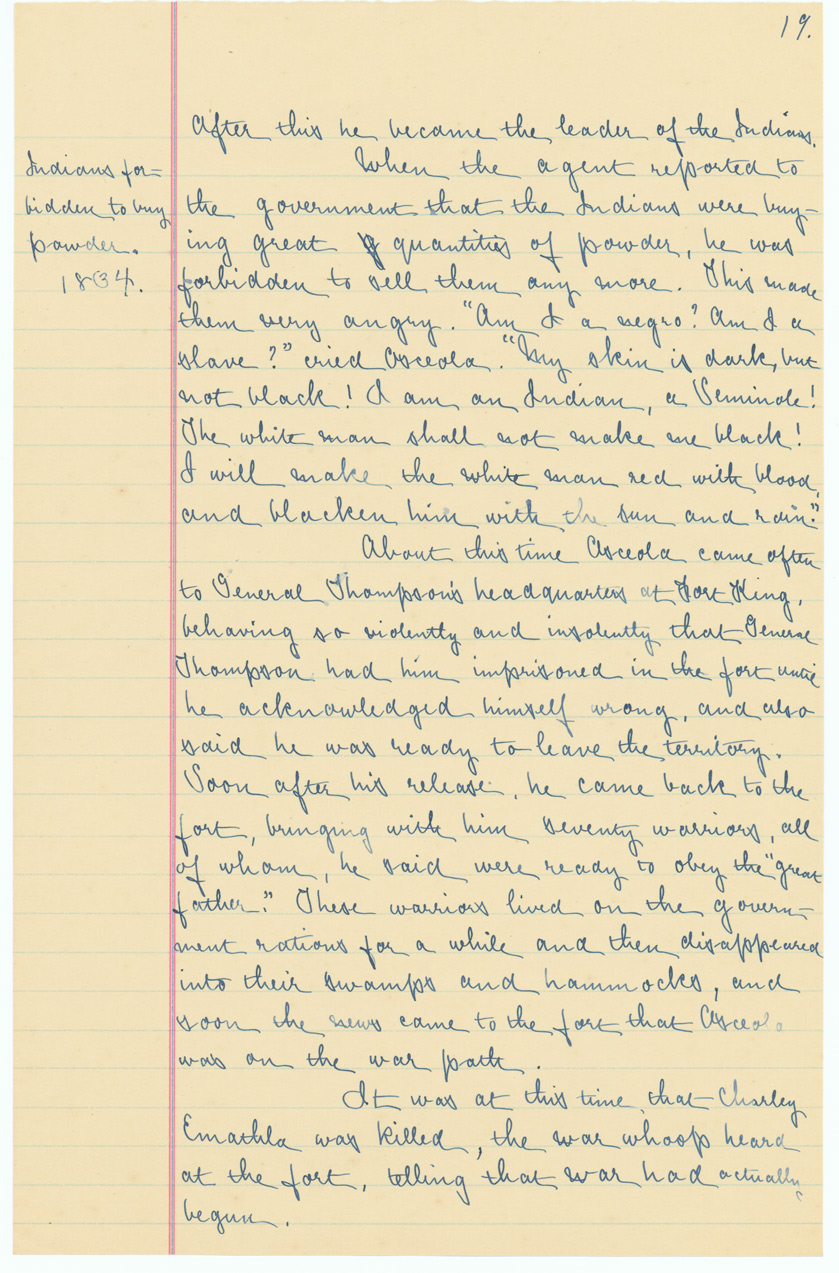 19.
After this he became the leader of the Indians.
Indians for=
bidden to buy
powder.
1834.
When the agent reported to
the government that the Indians were buy-
ing great quantities of powder, he was
forbidden to sell them any more. This made
them very angry. "Am I a negro? Am I a
slave?" cried Osceola. "My skin is dark, but
not black! I am an Indian, a Seminole!
The white man shall not make me black!
I will make the white man red with blood,
and blacken him with the sun and rain."
About this time Osceola came often
to General Thompson's headquarters at Fort King,
behaving so violently and insolently that General
Thompson had him imprisoned in the fort until
he acknowledged himself wrong, and also
said he was ready to leave the territory.
Soon after his release, he came back to the
fort, bringing with him seventy warriors, all
of whom, he said were ready to obey the "great
father." These warriors lived on the govern-
ment rations for a while and then disappeared
into their swamps and hammocks, and
soon the news came to the fort that Osceola
was on the war path.
It was at this time, that Charley
Emathla was killed, the war whoop heard
at the fort, telling that war had actually
begun.